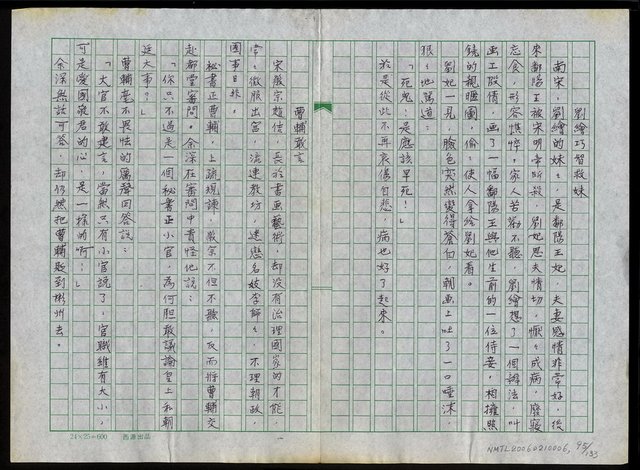 劉繪巧智救妹
南宋，劉繪的妹妹，是鄱陽王妃，夫妻感情非常好，後
來鄱陽王被宋明帝所殺，劉妃思夫情切，慨慨成病，廢寢
忘食，形容憔悴。家人苦勸不聽，劉繪想了一個辦法，叫
畫工殷倩，畫了一幅鄱陽王與他生前的一位侍妾，相擁照
鏡的親暱圖，偷偷使人拿給劉妃看。
劉妃一見，臉色突然變得蒼白，朝畫上吐了一口唾沫，
狠狠地罵道：
「死鬼！是應該早死！」
於是從此不再哀傷自悲，病也好了起來。
曹輔敢言
宋徽宗趙佶，長於書畫藝術，却沒有治理國家的才能，
常常微服出宮，流連教坊，迷戀名妓李師師，不理朝政，
國事日非。
秘書正曹輔，上疏規諫，徽宗不但不聽，反而將曹輔交
赴都堂審問。余深在審問中責怪他說：
「你只不過是一個秘書正小官，為何胆敢議論皇上和朝
廷大事？」
曹輔毫不畏怯的厲聲回答說：
「大官不敢建言，當然只有小官說了。官職雖有大小，
可是愛國愛君的心，是一樣的啊！」
余深無話可答，却仍然把曹輔貶到郴州去。
24×25=600 西源出品
NMTL20060210006, 95/133